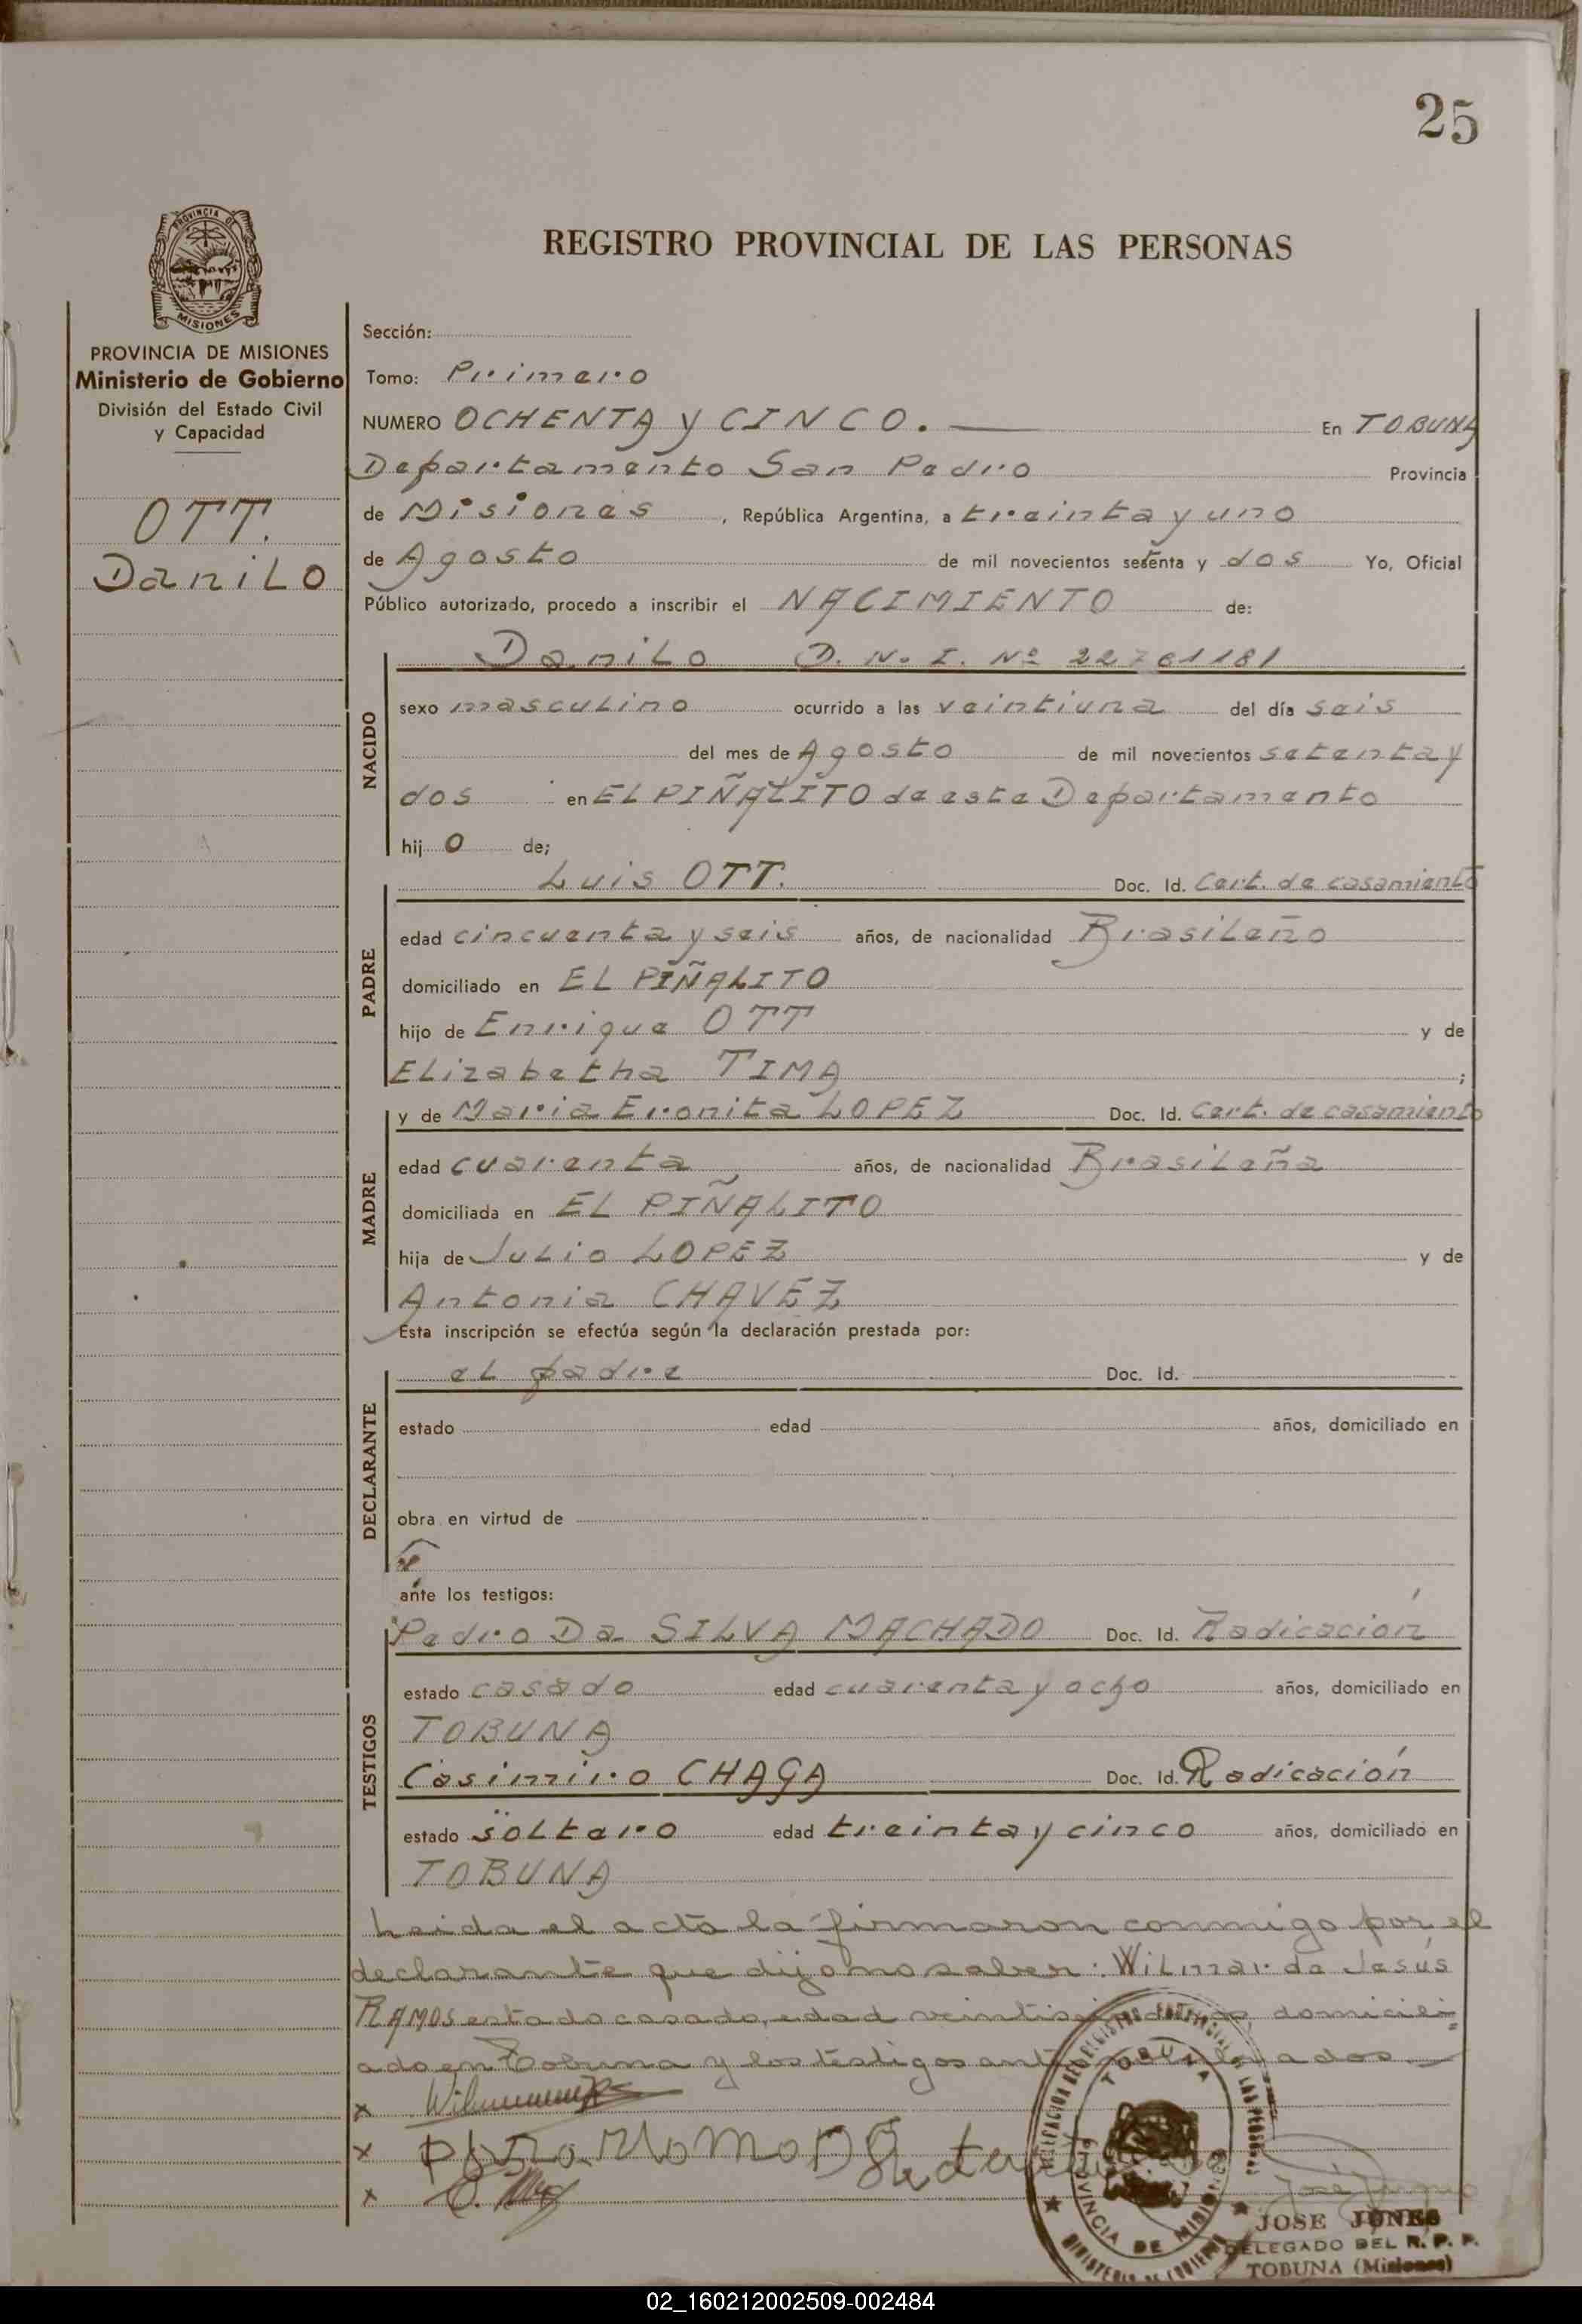 25
REGISTRO PROVINCIAL DE LAS PERSONAS
PROVINCIA DE MISIONES
Ministerio de Gobierno
División del Estado Civil
y Capacidad
OTT.
Danilo
Sección:
Tomo: Primero
NUMERO OCHENTA y CINCO. En TOBUNA
Departamento San Pedro Provincia
de Misiones, República Argentina, a treinta y uno
de Agosto de mil novecientos setenta y dos Yo, Oficial
Público autorizado, procedo a inscribir el NACIMIENTO de:
NACIDO
Danilo D. N. I. Nº 22761181
sexo masculino ocurrido a las veintiuna del día seis
del mes de Agosto de mil novecientos setenta y
dos en EL PIÑALITO de este Departamento
hij o de;
PADRE
Luis OTT. Doc. Id. Cert. de casamiento
edad cincuenta y seis años, de nacionalidad Brasileño
domiciliado en EL PIÑALITO
hijo de Enrique OTT y de
Elizabetha TIMA ;
MADRE
y de Maria Eronita LOPEZ Doc. Id. Cert. de casamiento
edad cuarenta años, de nacionalidad Brasileña
domiciliada en EL PIÑALITO
hija de Julio LOPEZ y de
Antonia CHAVEZ
Esta inscripción se efectúa según la declaración prestada por:
DECLARANTE
el padre Doc. Id.
estado edad años, domiciliado en
obra en virtud de
ante los testigos:
TESTIGOS
Pedro Da SILVA MACHADO Doc. Id. Radicación
estado casado edad cuarenta y ocho años, domiciliado en
TOBUNA
Casimiro CHAGA Doc. Id. Radicación
estado soltero edad treinta y cinco años, domiciliado en
TOBUNA
Leida el acta la firmaron conmigo por el
declarante que dijo no saber: Wilmar de Jesús
RAMOS estado casado, edad domicili=
ado en Tobuna y los testigos
x
x
x
TOBUNA
PROVINCIA DE MISIONES
JOSE JONES
DELEGADO DEL R. P. P.
TOBUNA (Misiones)
02_160212002509-002484